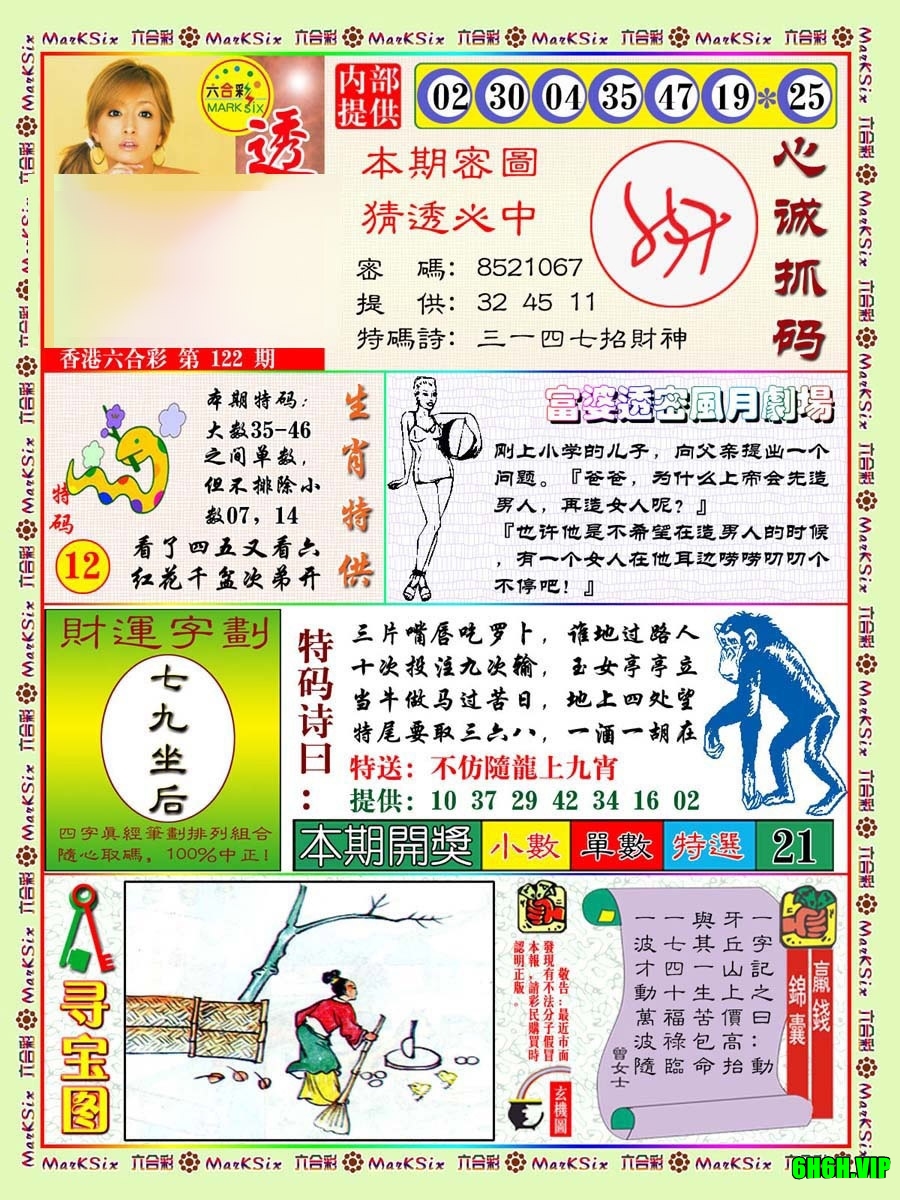 MarKSix 六合彩 MarKSix 六合彩 MarKSix 六合彩 MarKSix 六合彩 MarKSix 六合彩
六合彩
MARK SIX
透
内部
提供
02 30 04 35 47 19 * 25
本期密圖
猜透必中
密 碼：8521067
提 供：32 45 11
特碼詩：三一四七招財神
心诚抓码
香港六合彩 第 122 期
本期特码：
大数35-46
之间单数，
但不排除小
数07，14
看了四五又看六
红花千盆次弟开
特码
12
生肖特供
富婆透密風月劇場
刚上小学的儿子，向父亲提出一个
问题。『爸爸，为什么上帝会先造
男人，再造女人呢？』
『也许他是不希望在造男人的时候
，有一个女人在他耳边唠唠叨叨个
不停吧！』
財運字劃
七九坐后
四字真經筆劃排列組合
隨心取碼，100%中正！
特码诗曰：
三片嘴唇吃罗卜，谁地过路人
十次投注九次输，玉女亭亭立
当牛做马过苦日，地上四处望
特尾要取三六八，一酒一胡在
特送：不仿隨龍上九宵
提供：10 37 29 42 34 16 02
本期開獎 小數 單數 特選 21
寻宝图
敬告：最近市面
發現有不法分子假冒
本報，請彩民購買時
認明正版。
玄機圖
一字記之曰：動
牙丘山上價高抬
與其一生苦包命
一七四十福祿臨
一波才動萬波隨
曾女士
贏錢
錦囊
MarKSix 六合彩 MarKSix 六合彩 MarKSix 六合彩 MarKSix 六合彩 MarKSix
6H6H.VIP